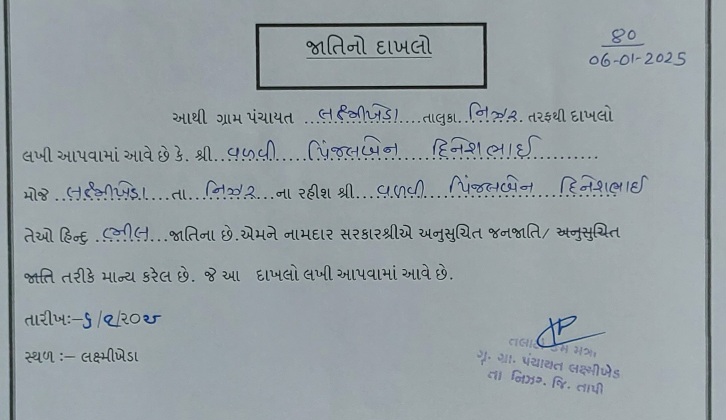 જાતિનો દાખલો
૪૦
૦૬-૦૧-2૦૨૫
આથી ગ્રામ પંચાયત લક્ષ્મીખેડા તાલુકા નિઝર તરફથી દાખલો
લખી આપવામાં આવે છે કે. શ્રી વળવી પિંજલબેન દિનેશભાઈ
મોજે લક્ષ્મીખેડા તા નિઝર ના રહીશ શ્રી વળવી પિંજલબેન દિનેશભાઈ
તેઓ હિન્દુ ભીલ જાતિના છે. એમને નામદાર સરકારશ્રીએ અનુસુચિત જનજાતિ/ અનુસુચિત
જાતિ તરીકે માન્ય કરેલ છે. જે આ દાખલો લખી આપવામાં આવે છે.
તારીખ:-૬/૧/૨૦૨૫
સ્થળ :– લક્ષ્મીખેડા
તલાટી કમ મંત્રી
ગૃ. ગ્રા. પંચાયત લક્ષ્મીખેડા
તા નિઝર. જિ. તાપી